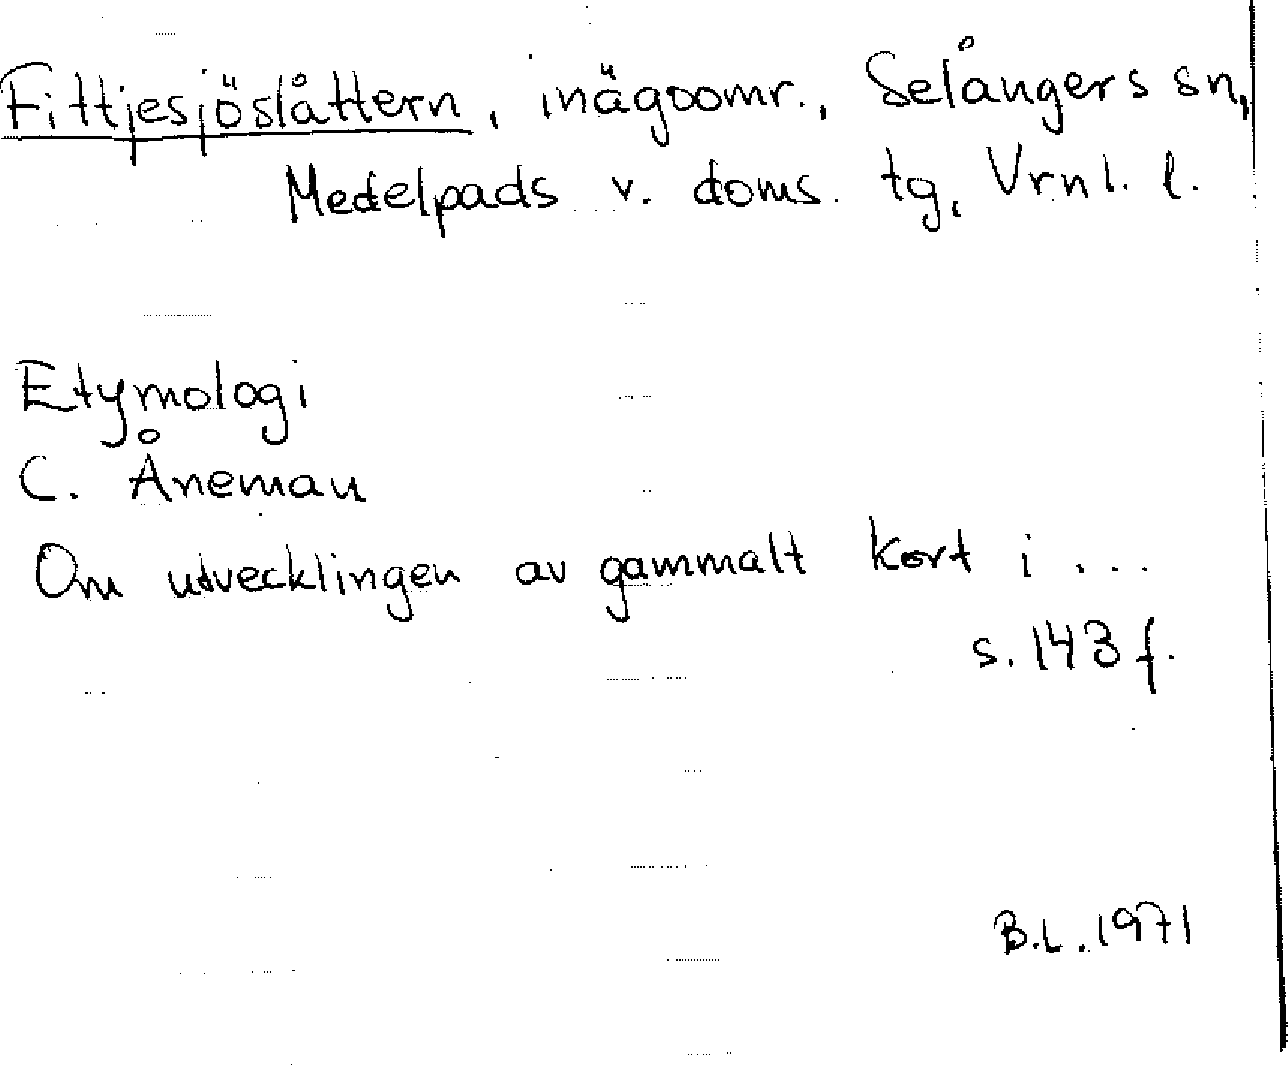 Fittjesjöslåttern, inägoomr., Selångers sn,
Medelpads v. doms. tg, Vrnl. l.
Etymologi
C. Åneman
Om utvecklingen av gammalt kort i ...
s. 143 f.
B.L. 1971